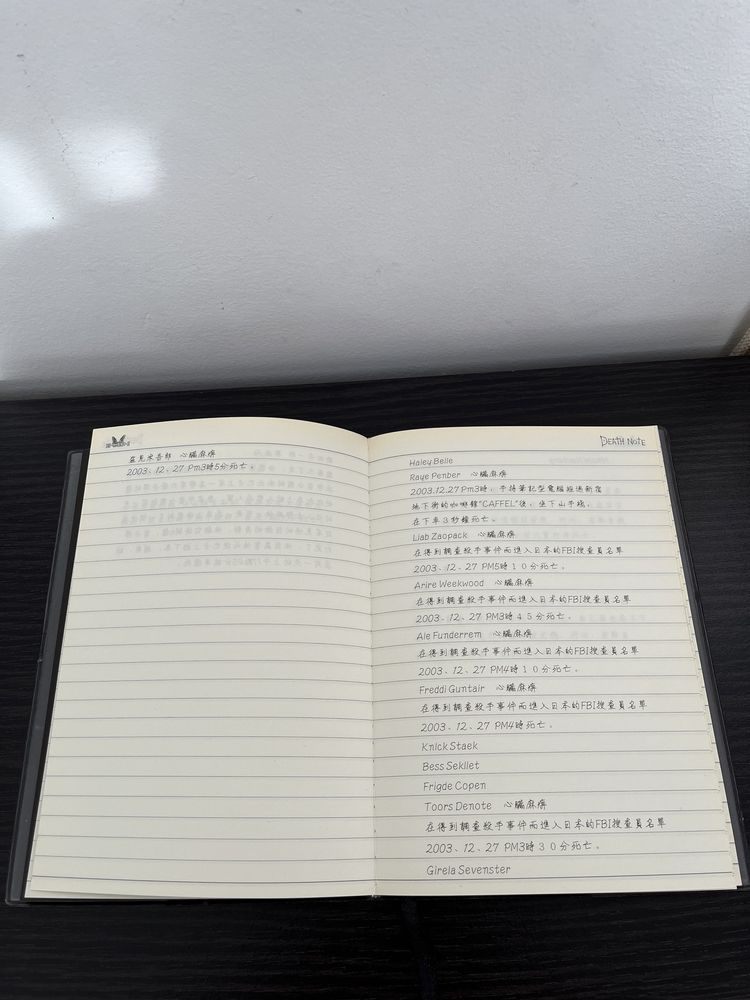 益見米吾郎 心臟麻痺
2003、12、27 Pm3時5分死亡。
DEATH NOTE
Haley Belle
Raye Penber 心臟麻痺
2003.12.27 Pm3時，手持筆記型電腦經過新宿
地下街的咖啡館"CAFFEL"後，坐下山手線，
在下車3秒鐘死亡。
Liab Zaopack 心臟麻痺
在得到調查殺手事件而進入日本的FBI搜查員名單
2003、12、27 PM5時10分死亡。
Arire Weekwood 心臟麻痺
在得到調查殺手事件而進入日本的FBI搜查員名單
2003、12、27 PM3時45分死亡。
Ale Funderrem 心臟麻痺
在得到調查殺手事件而進入日本的FBI搜查員名單
2003、12、27 PM4時10分死亡。
Freddi Guntair 心臟麻痺
在得到調查殺手事件而進入日本的FBI搜查員名單
2003、12、27 PM4時死亡。
Knick Staek
Bess Sekllet
Frigde Copen
Toors Denote 心臟麻痺
在得到調查殺手事件而進入日本的FBI搜查員名單
2003、12、27 PM3時30分死亡。
Girela Sevenster